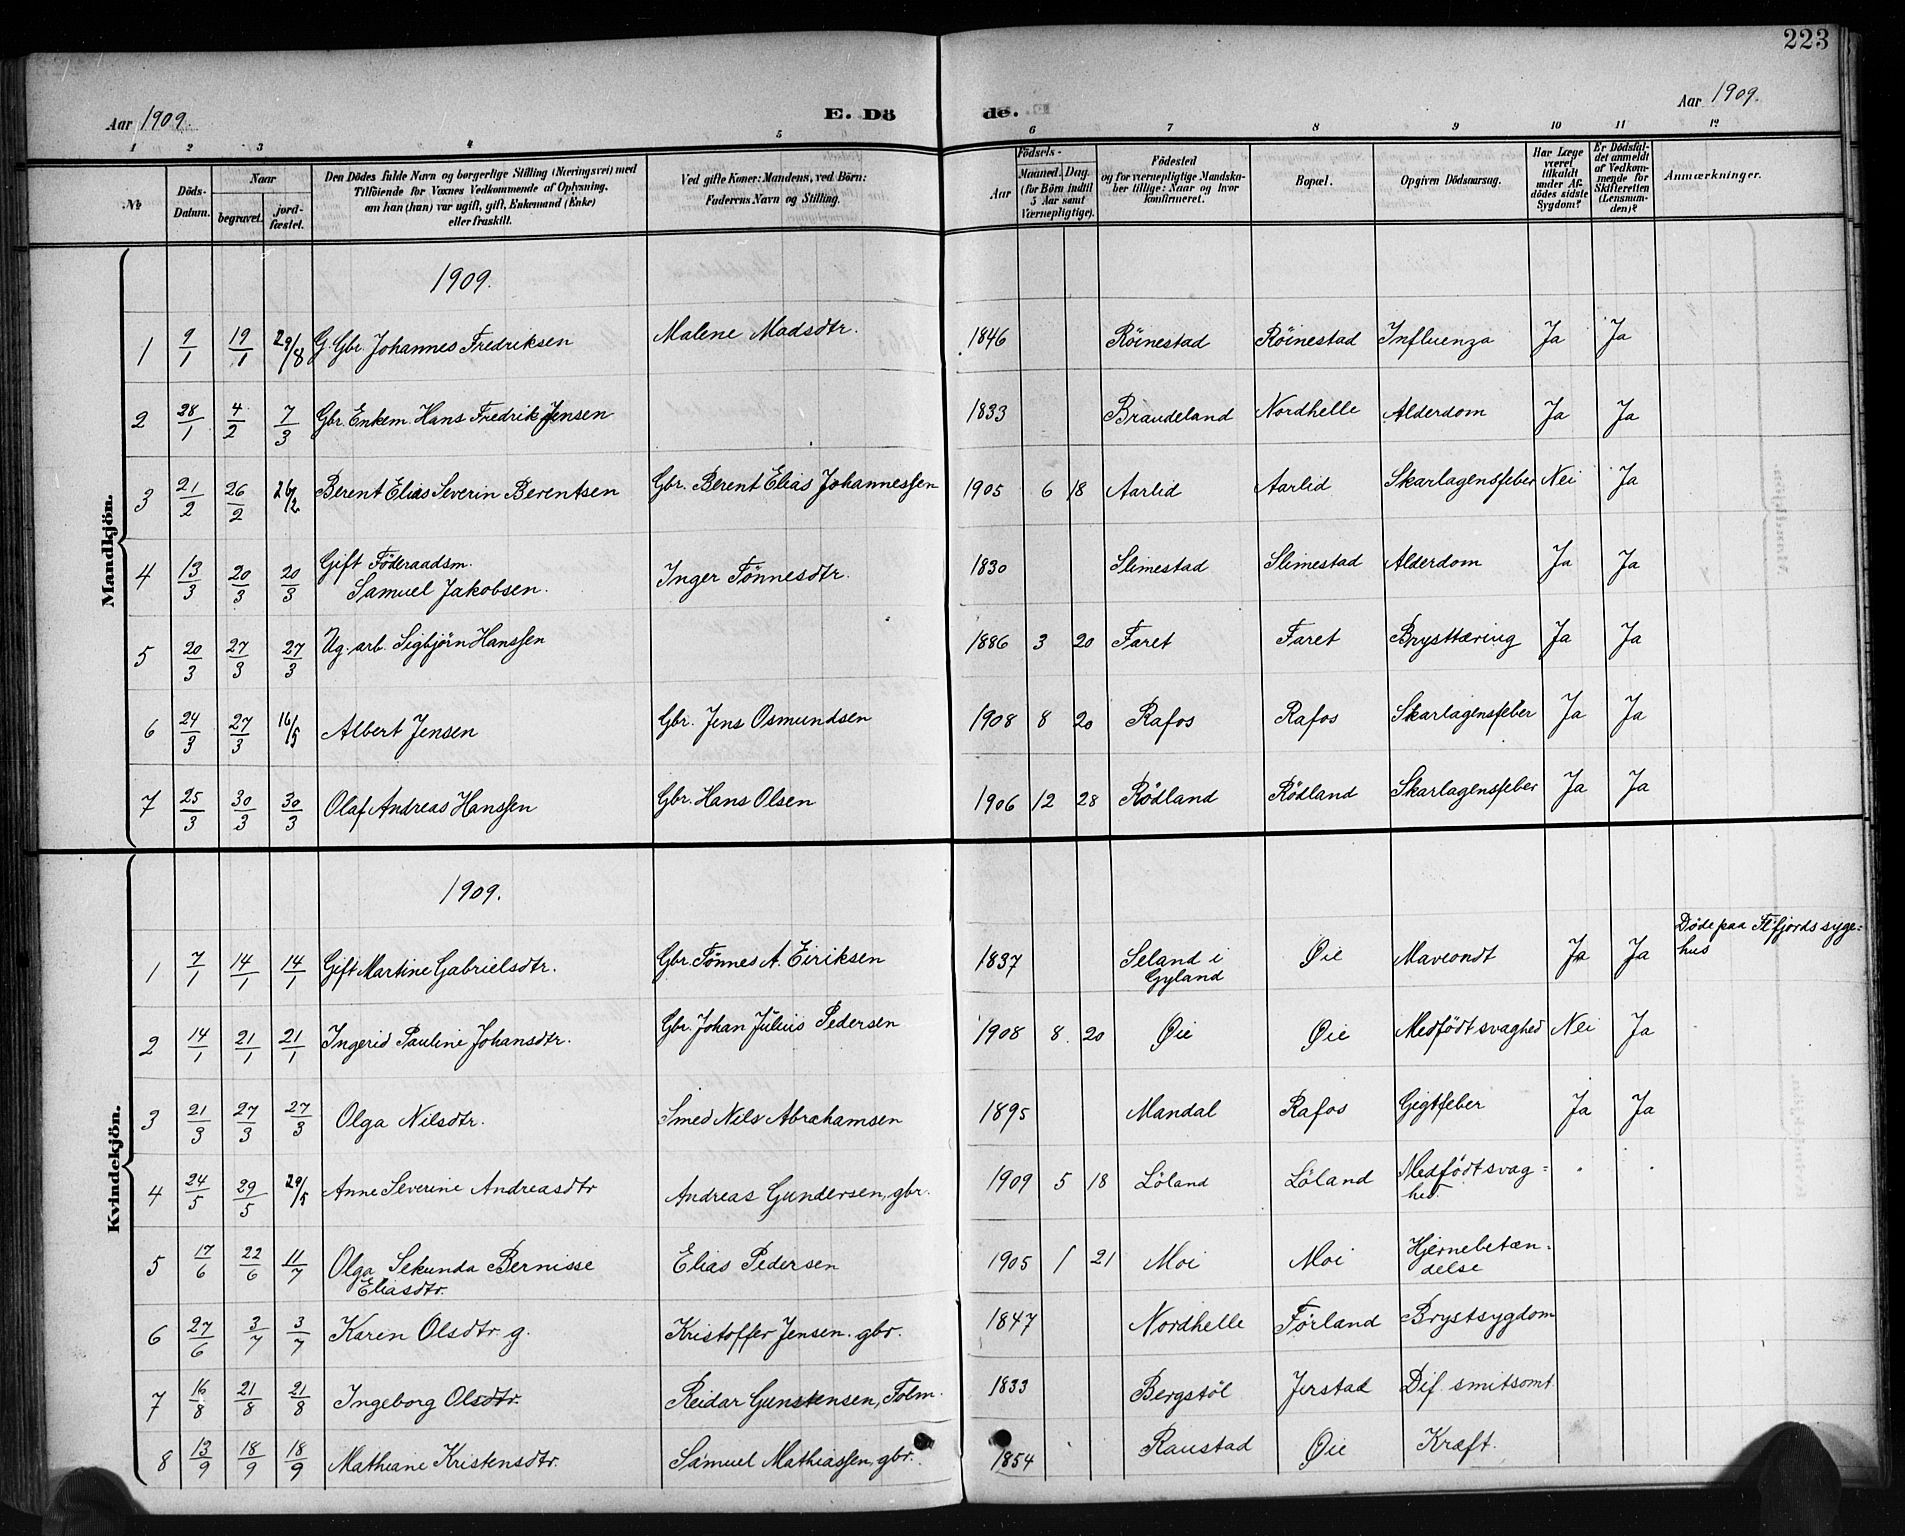 223
Aar 1909.
E. Dö
de.
Aar 1909.
1 2 3 4 5 6 7 8 9 10 11 12
№
Döds-Datum.
Naar
begravet.
jord-fæstet.
Den Dödes fulde Navn og borgerlige Stilling (Næringsvei) med
Tilföiende for Voxnes Vedkommende af Oplysning,
om han (hun) var ugift, gift, Enkemand (Enke)
eller fraskilt.
Ved gifte Koner: Mandens, ved Börn:
Faderens Navn og Stilling.
Födsels-
Aar
Maaned. Dag.
(for Börn indtil
5 Aar samt
Værnepligtige).
Födested
og for værnepligtige Mandska-
ber tillige: Naar og hvor
konfirmeret.
Bopæl.
Opgiven Dödsaarsag.
Har Læge
været
tilkaldt
under Af-
dödes sidste
Sygdom?
Er Dödsfal-
det anmeldt
af Vedkom-
mende for
Skifteretten
(Lensman-
den)?
Anmærkninger.
Mandkjön.
1909.
1 9/1 19/1 29/8 G. Gbr. Johannes Fredriksen Malene Madsdtr. 1846 Röinestad Röinestad Influenza Ja Ja
2 28/1 4/2 7/3 Gbr. Enkem. Hans Fredrik Jensen 1833 Braudeland Nordhelle Alderdom Ja Ja
3 21/2 26/2 26/2 Berent Elias Severin Berentsen Gbr. Berent Elias Johannessen 1905 6 18 Aarlid Aarlid Skarlagensfeber Nei Ja
4 13/3 20/3 20/3 Gift Föderaadsm.
Samuel Jakobsen. Inger Tönnesdtr. 1830 Slimestad Slimestad Alderdom Ja Ja
5 20/3 27/3 27/3 Ug. arb. Sigbjörn Hanssen 1886 3 20 Faret Faret Brysttæring Ja Ja
6 24/3 27/3 16/5 Albert Jensen Gbr. Jens Osmundsen 1908 8 20 Rafos Rafos Skarlagensfeber Ja Ja
7 25/3 30/3 30/3 Olaf Andreas Hanssen Gbr. Hans Olsen 1906 12 28 Rödland Rödland Skarlagensfeber Ja Ja
Kvindekjön.
1909.
1 7/1 14/1 14/1 Gift Martine Gabrielsdtr. Gbr. Tönnes A. Eiriksen 1837 Seland i
Gyland Øie Maveondt Ja Ja Døde paa Flfjords syge=
hus
2 14/1 21/1 21/1 Ingerid Pauline Johansdtr. Gbr. Johan Julius Pedersen 1908 8. 20 Øie Øie Medfödt svaghed Nei Ja
3 21/3 27/3 27/3 Olga Nilsdtr. Smed Nils Abrahamsen 1895 Mandal Rafos Gigtfeber Ja Ja
4 24/5 29/5 29/5 Anne Severine Andreasdtr Andreas Gundersen, gbr. 1909 5 18 Löland Löland Medfödt svag=
hed. . .
5 17/6 22/6 11/7 Olga Sekunda Bernisse
Eliasdtr. Elias Pedersen 1905 1 21 Moi Moi Hjernebetæn-
delse
6 27/6 3/7 3/7 Karen Olsdtr. g. Kristoffer Jensen. gbr. 1847 Nordhelle Förland Brystsygdom
7 16/8 21/8 21/8 Ingeborg Olsdtr. Reidar Gunstensen, Folm. 1833 Bergstöl Jerstad Dif. smitsomt
8 13/9 18/9 18/9 Mathiane Kristensdtr. Samuel Mathiassen, gbr. 1854 Raustad Øie Kræft.